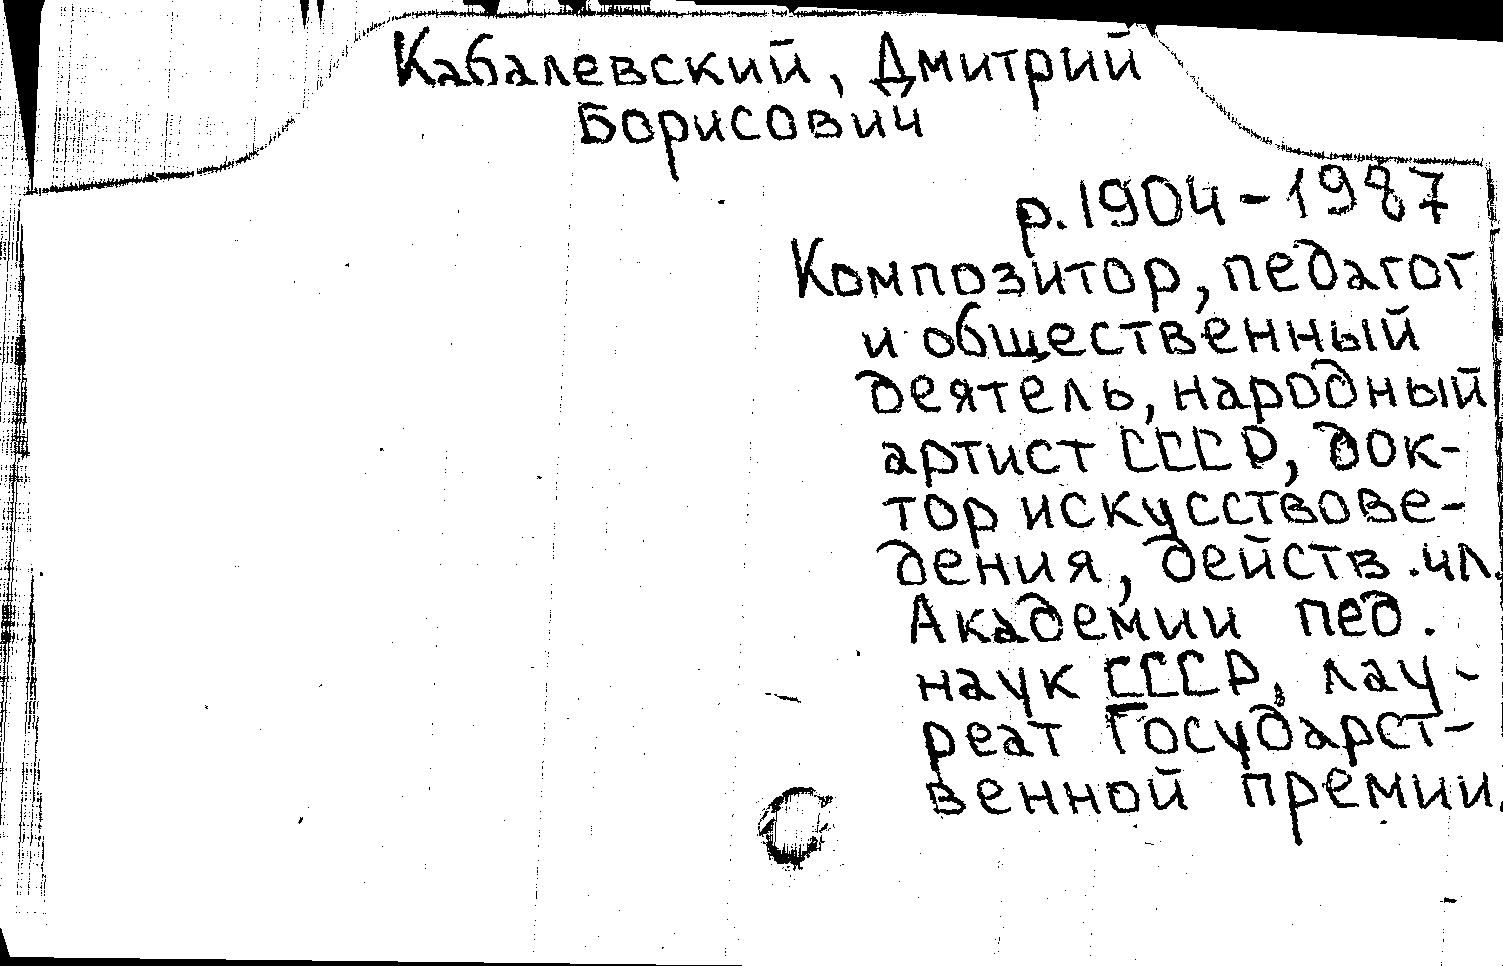 Кабалевский, Дмитрий
Борисович
р. 1904-1987
Композитор, педагог
и общественный
деятель, народный
артист СССР, док-
тор искусствове-
дения, действ. чл.
Академии пед.
наук СССР, лау-
реат Государст-
венной премии.